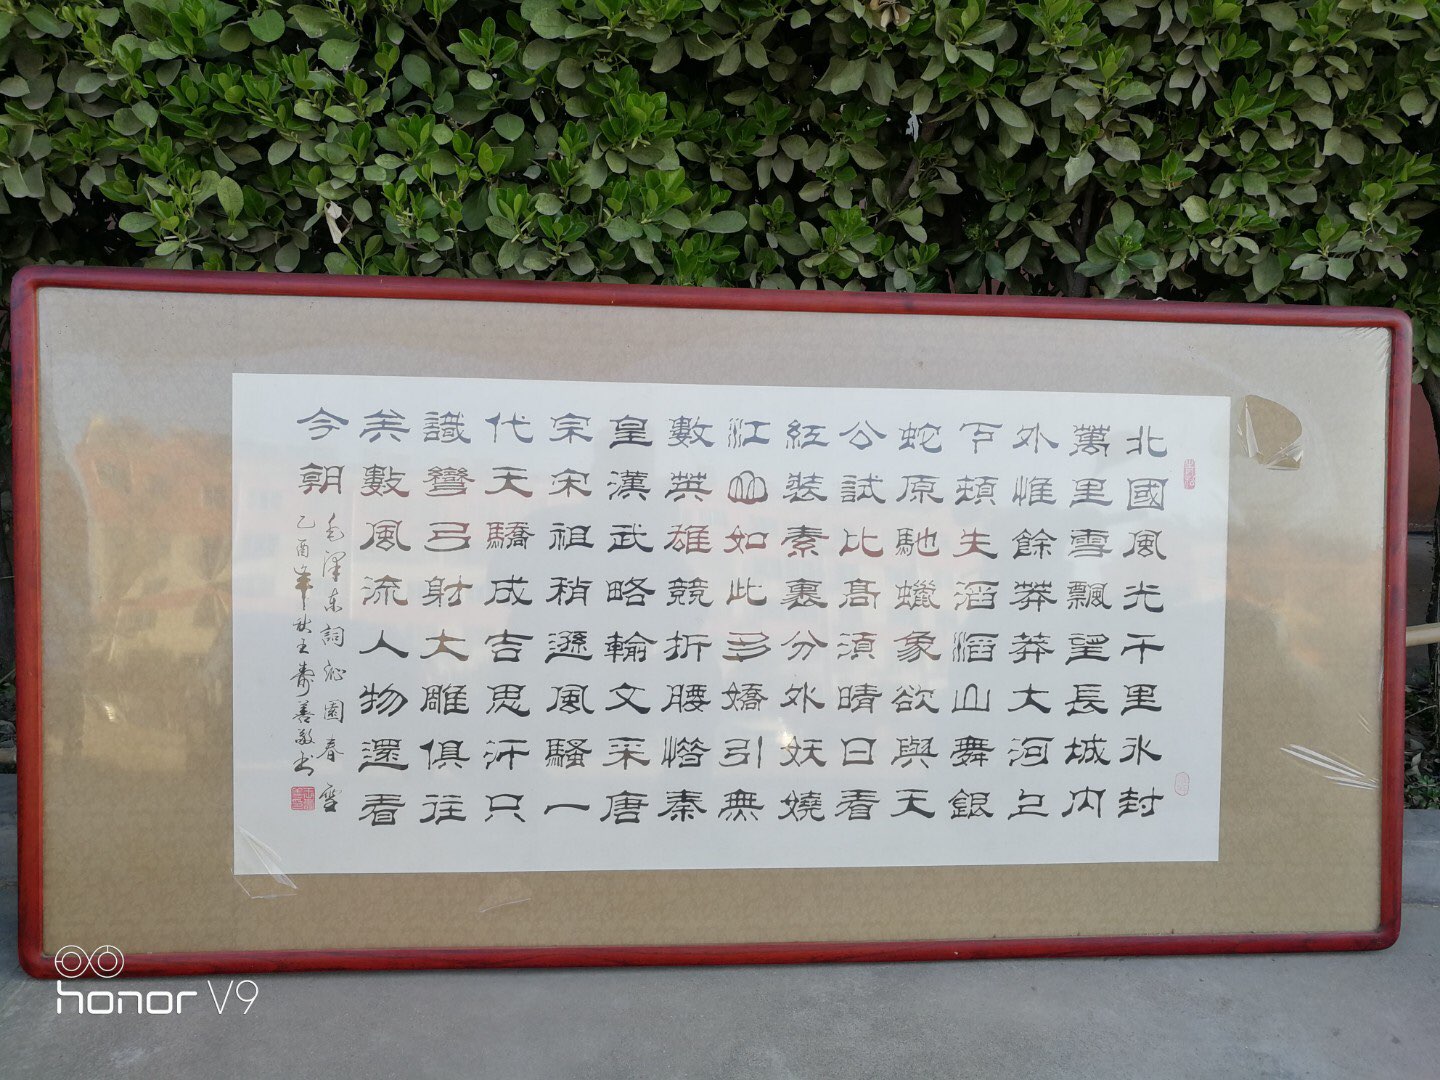 北國風光千里冰封
萬里雪飄望長城内
外惟餘莽莽大河上
下頓失滔滔山舞銀
蛇原馳蠟象欲與天
公試比高須晴日看
紅裝素裹分外妖嬈
江山如此多嬌引無
數英雄競折腰惜秦
皇漢武略輸文采唐
宗宋祖稍遜風騷一
代天驕成吉思汗只
識彎弓射大雕俱往
矣數風流人物還看
今朝
毛澤東詞沁園春雪
乙酉年秋王壽善敬书
honor V9